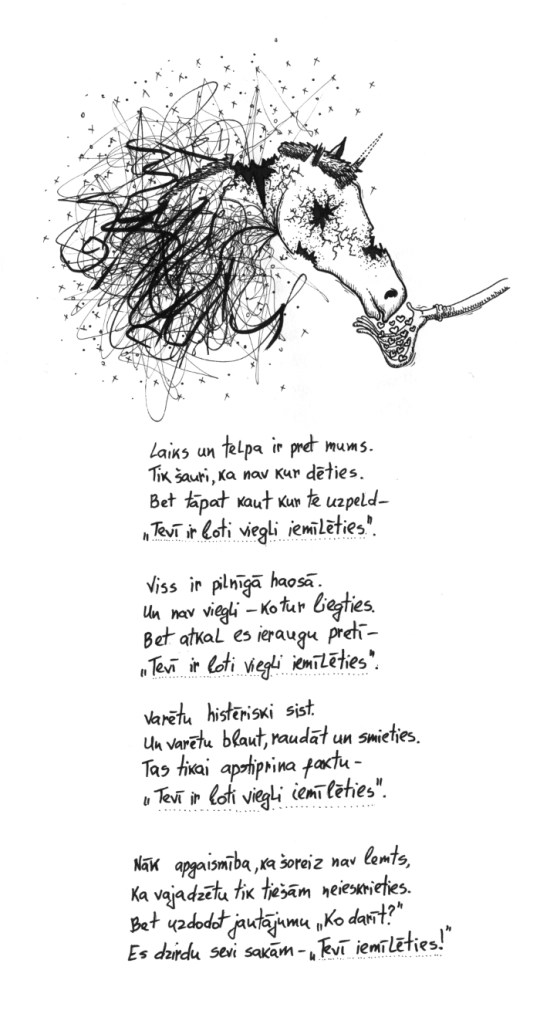 Laiks un telpa ir pret mums.
Tik šauri, ka nav kur dēties.
Bet tāpat kaut kur te uzpeld –
„Tevī ir ļoti viegli iemīlēties".
Viss ir pilnīgā haosā.
Un nav viegli – ko tur liegties.
Bet atkal es ieraugu pretī –
„Tevī ir ļoti viegli iemīlēties".
Varētu histēriski sist.
Un varētu bļaut, raudāt un smieties.
Tas tikai apstiprina faktu –
„Tevī ir ļoti viegli iemīlēties".
Nāk apgaismība, ka šoreiz nav lemts,
Ka vajadzētu tik tiešām neieskrieties.
Bet uzdodot jautājumu „Ko darīt?"
Es dzirdu sevi sakām – „Tevī iemīlēties!"